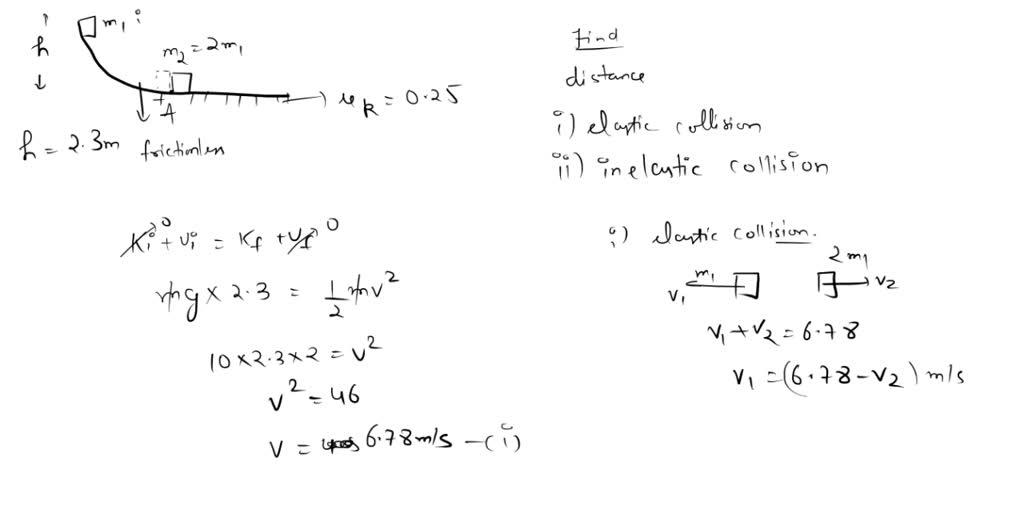 h
m₁
m₂ = 2m₁
A
μₖ = 0.25
h = 2.3m frictionless
Find
distance
i) elastic collision
ii) inelastic collision
Kᵢ⁰ + Uᵢ = K_f + U_f⁰
mg × 2.3 = 1/2 mv²
10×2.3×2 = v²
v² = 46
v = 6.78 m/s —(i)
i) elastic collision.
v₁ m₁
2m₁ v₂
v₁ + v₂ = 6.78
v₁ = (6.78 - v₂) m/s